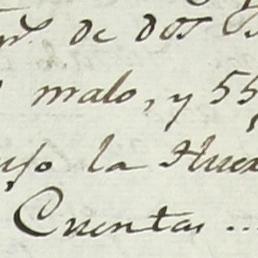 de dos
malo, y 55
la Huer
Cuentas ...